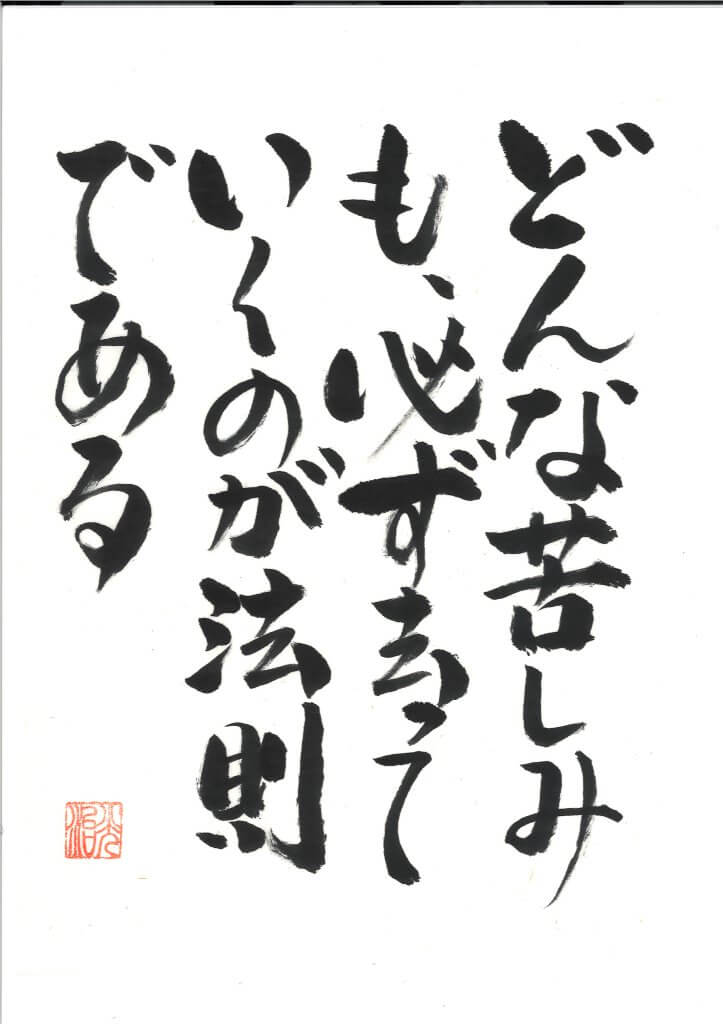 どんな苦しみ
も、必ず去って
いくのが法則
である